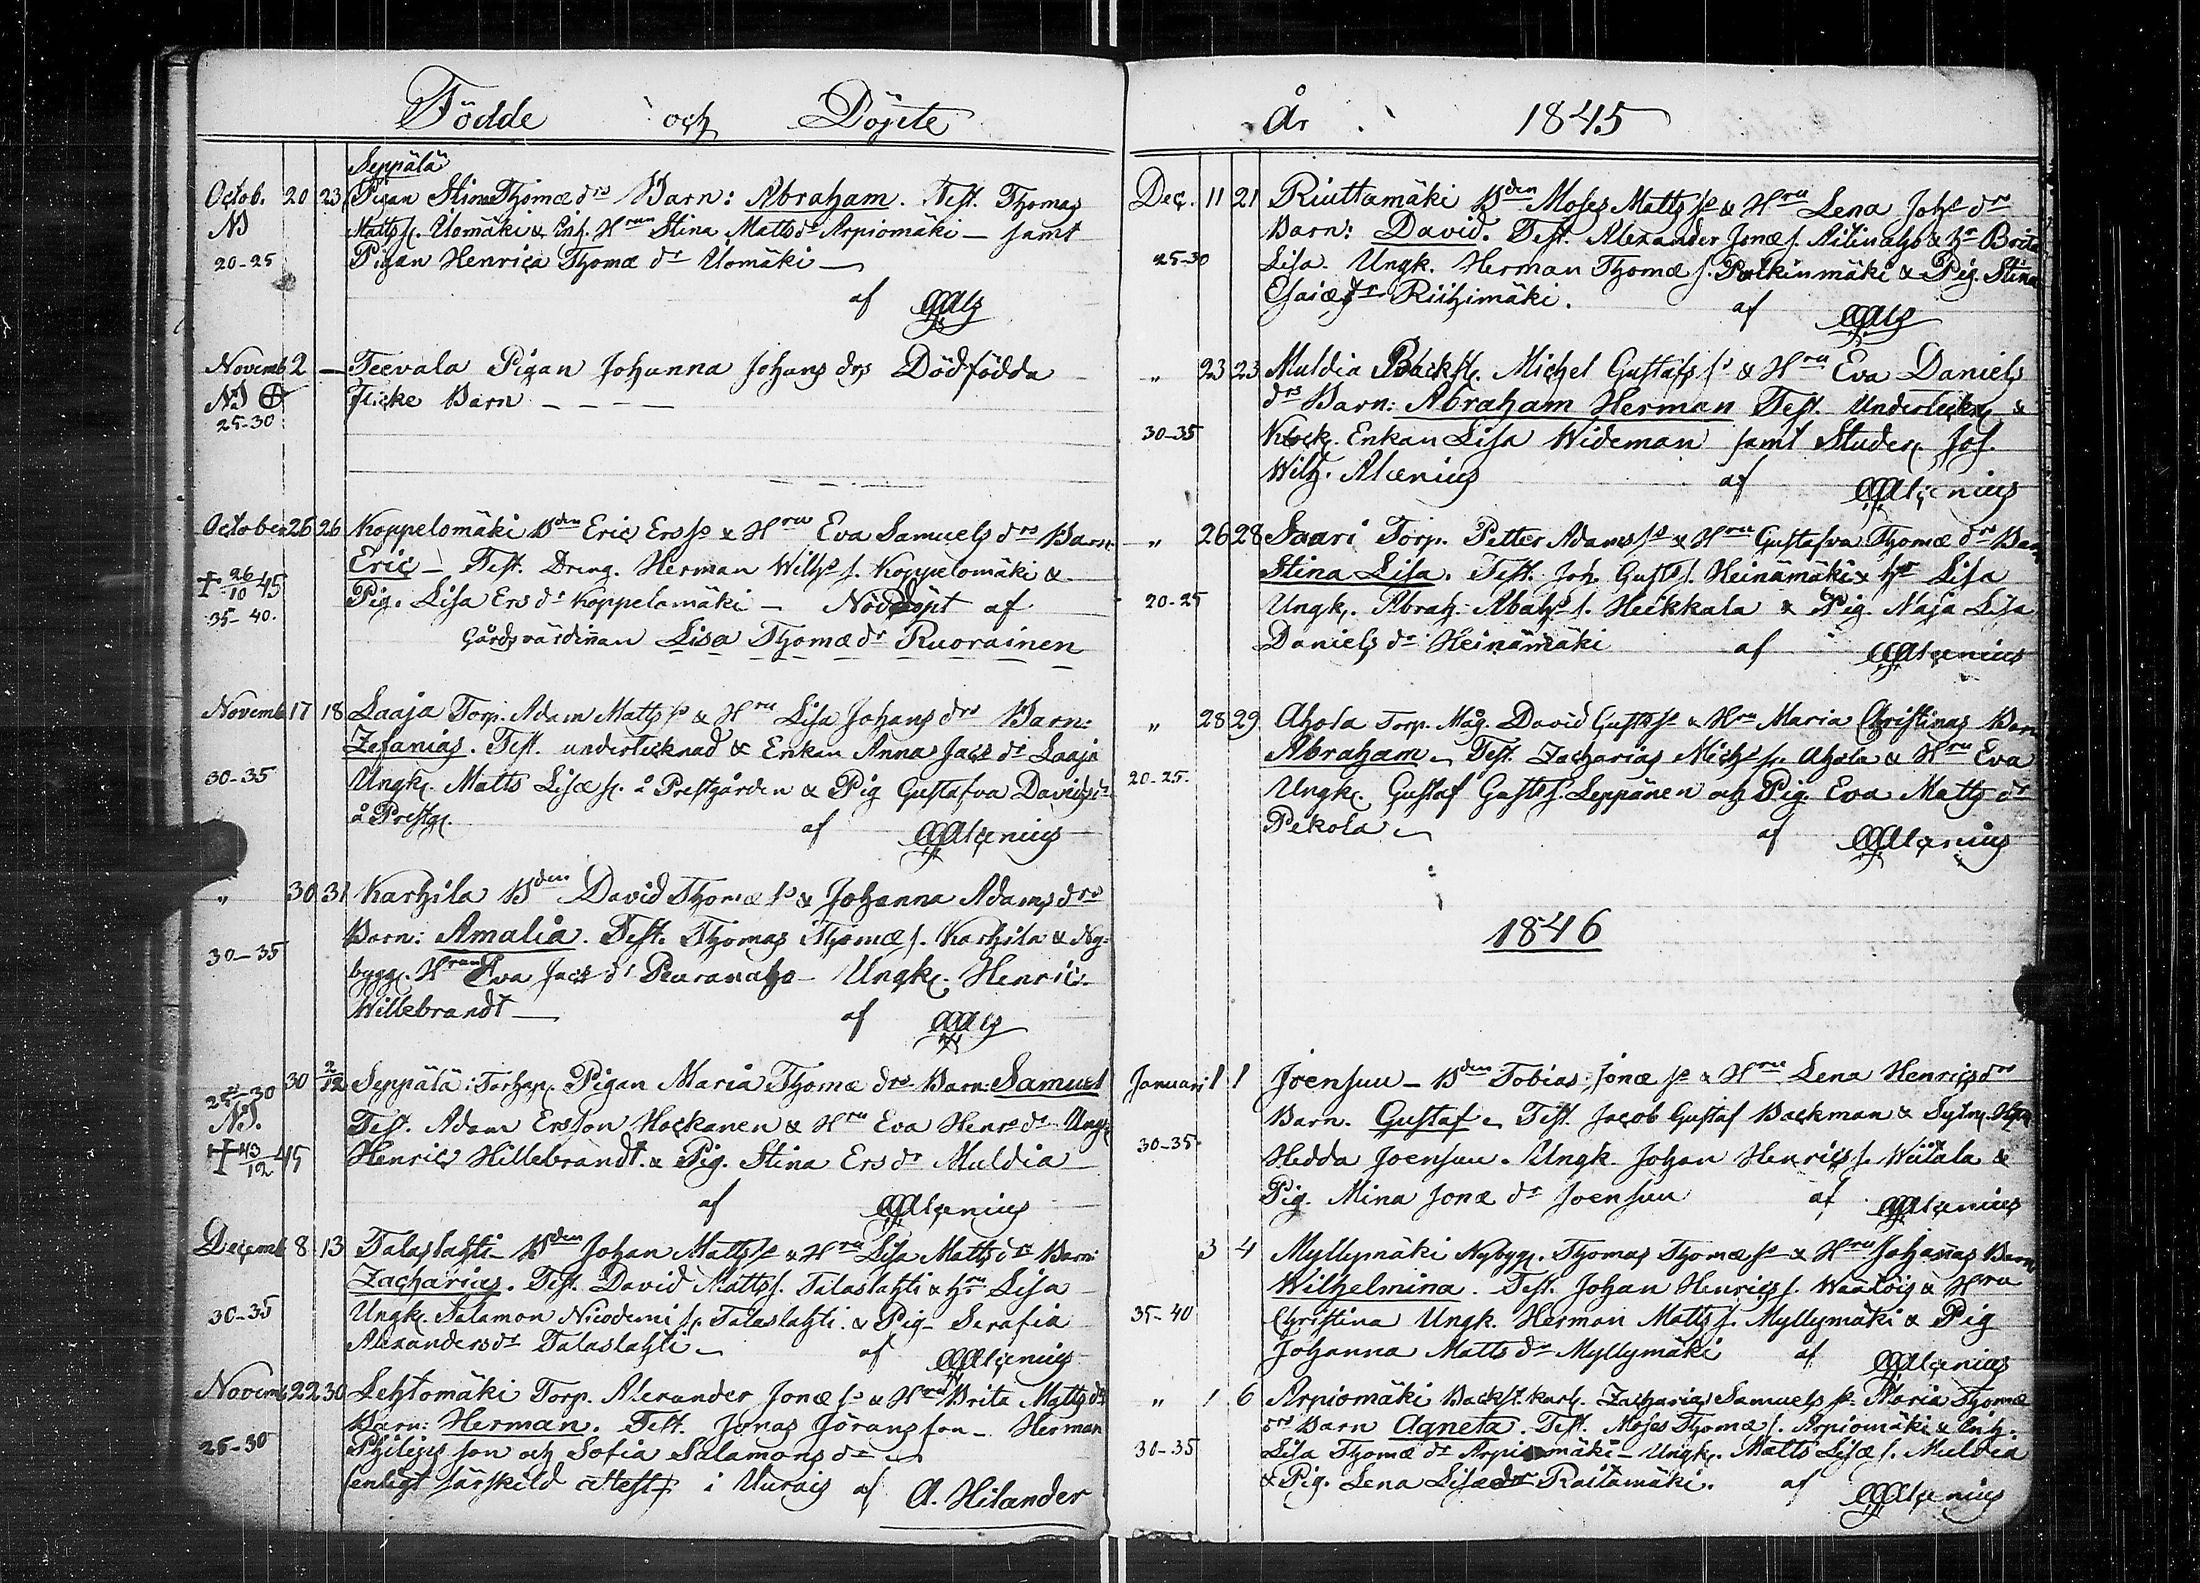 Födde och Döpte
Seppälä
Octob. 20 23 Pigan Stina Thomæ drs Barn: Abraham. Test. Thomas
NS Matts s. Ulomäki & Enk. Hrun Stina Matts dr Arpiomäki — samt
20-25 Pigan Henrica Thomæ dr Ulomäki —
af
Novemb 2 — Teevala Pigan Johanna Johans drs Dödfödda
25-30 flicke Barn - - - -
October 26 26 Koppelomäki Bden Eric Ers so & Hru Eva Samuels drs Barn
Eric — Test. Dreng. Herman Wilhs s. Koppelomäki &
+ 26/10 45 Pig. Lisa Ers dr Koppelomäki — Nöddöpt af
35-40. Gårdsvärdinnan Lisa Thomæ dr Ruorainen
Novemb 17 18 Laaja Torp. Adam Matts so & Hru Lisa Johans drs Barn:
Zefanias. Test. undertecknad & Enkan Anna Jacs dr Laaja
30-35 Ungk. Matts Lisæ s. å Prestgården & Pig Gustafva Davids dr
å Prestg. af Alcenius
" 30 31 Karhila Bden David Thomæ so & Johanna Adams drs
Barn: Amalia. Test. Thomas Thomæ s. Karhila & Ny-
30-35 bygg. Hrun Eva Jacs dr Peuranaho — Ungk. Henric
Willebrandt — af
30 2/12 Seppälä: Torhep. Pigan Maria Thomæ drs Barn: Samuel
25-30
NS. Test. Adam Ersson Hackanen & Hru Eva Henrs dr Ungk.
+ 13/12 45 Henric Hillebrandt. & Pig. Stina Ers dr Muldia —
af Alcenius
Decemb 8 13 Talaslahti Bden Johan Matts so & Hru Lisa Matts drs Barn:
Zacharias. Test. David Matts s. Talaslahti & hru Lisa
30-35 Ungk. Salamon Nicodemi s. Talaslahti & Pig Serafia
Alexanders dr Talaslahti — af Alcenius
Novemb 22 30 Lehtomäki Torp. Alexander Jonæ so & Hru Brita Matts drs
Barn: Herman. Test. Jonas Göransson — Herman
25-30 Philips son och Sofia Salamons dr
enligt särskild attest i Uurais af A. Hilander
År 1845
Dec. 11 21 Riuttamäki Bden Moses Matts so & Hru Lena Johs drs
Barn: David. Test. Alexander Jonæ s. Ailinaho & hr Brita
25-30 Lisa. Ungk. Herman Thomæ s. Pölkinmäki & Pig. Stina
Esaiæ dr Riihimäki. af
" 23 23 Muldia Backst. Michel Gustafs so & Hru Eva Daniels
drs Barn: Abraham Herman Test. Underteckn. &
30-35 Klock. Enkan Lisa Wideman samt Studer. Jos.
Wilh. Alcenius af Alcenius
" 26 28 Saari Torp. Petter Adams so & Hru Gustafva Thomæ drs Barn
Stina Lisa. Test. Joh. Gusts s. Heinämäki & hr Lisa
20-25 Ungk. Abrah. Abahs s. Heikkala & Pig. Maja Lisa
Daniels dr Heinämäki af Alcenius
" 28 29 Ahola Torp. Måg. David Gusts so & Hru Maria Christinas Barn
Abraham — Test. Zacharias Michs s. Ahola & Hru Eva
20-25. Ungk. Gustaf Gusts s. Leppänen och Pig. Eva Matts dr
Pekola — af Alcenius
1846
Januari 1 1 Joensuu — Bden Tobias Jonæ so & Hru Lena Henrics drs
Barn. Gustaf — Test. Jacob Gustaf Backman & Sytn. Hru
30-35 Hedda Joensuu. Ungk Johan Henrics s. Wiitala &
Pig. Mina Jonæ dr Joensuu af Alcenius
3 4 Myllymäki Nybygg. Thomas Thomæ so & Hru Johannas Barn
Wilhelmina. Test. Johan Henrics s. & Hru
35-40 Christina Ungk. Herman Matts s. Myllymäki & Pig
Johanna Matts dr Myllymäki af Alcenius
" 1 6 Arpiomäki Backst. karl. Zacharias Samuels so Maria Thomæ
drs Barn Agneta. Test. Moses Thomæ s. Arpiomäki & Enk.
30-35 Lisa Thomæ dr Arpiomäki — Ungk. Matts Lisæ s. Muldia
& Pig. Lena Lisæ dr Raitamäki. af Alcenius